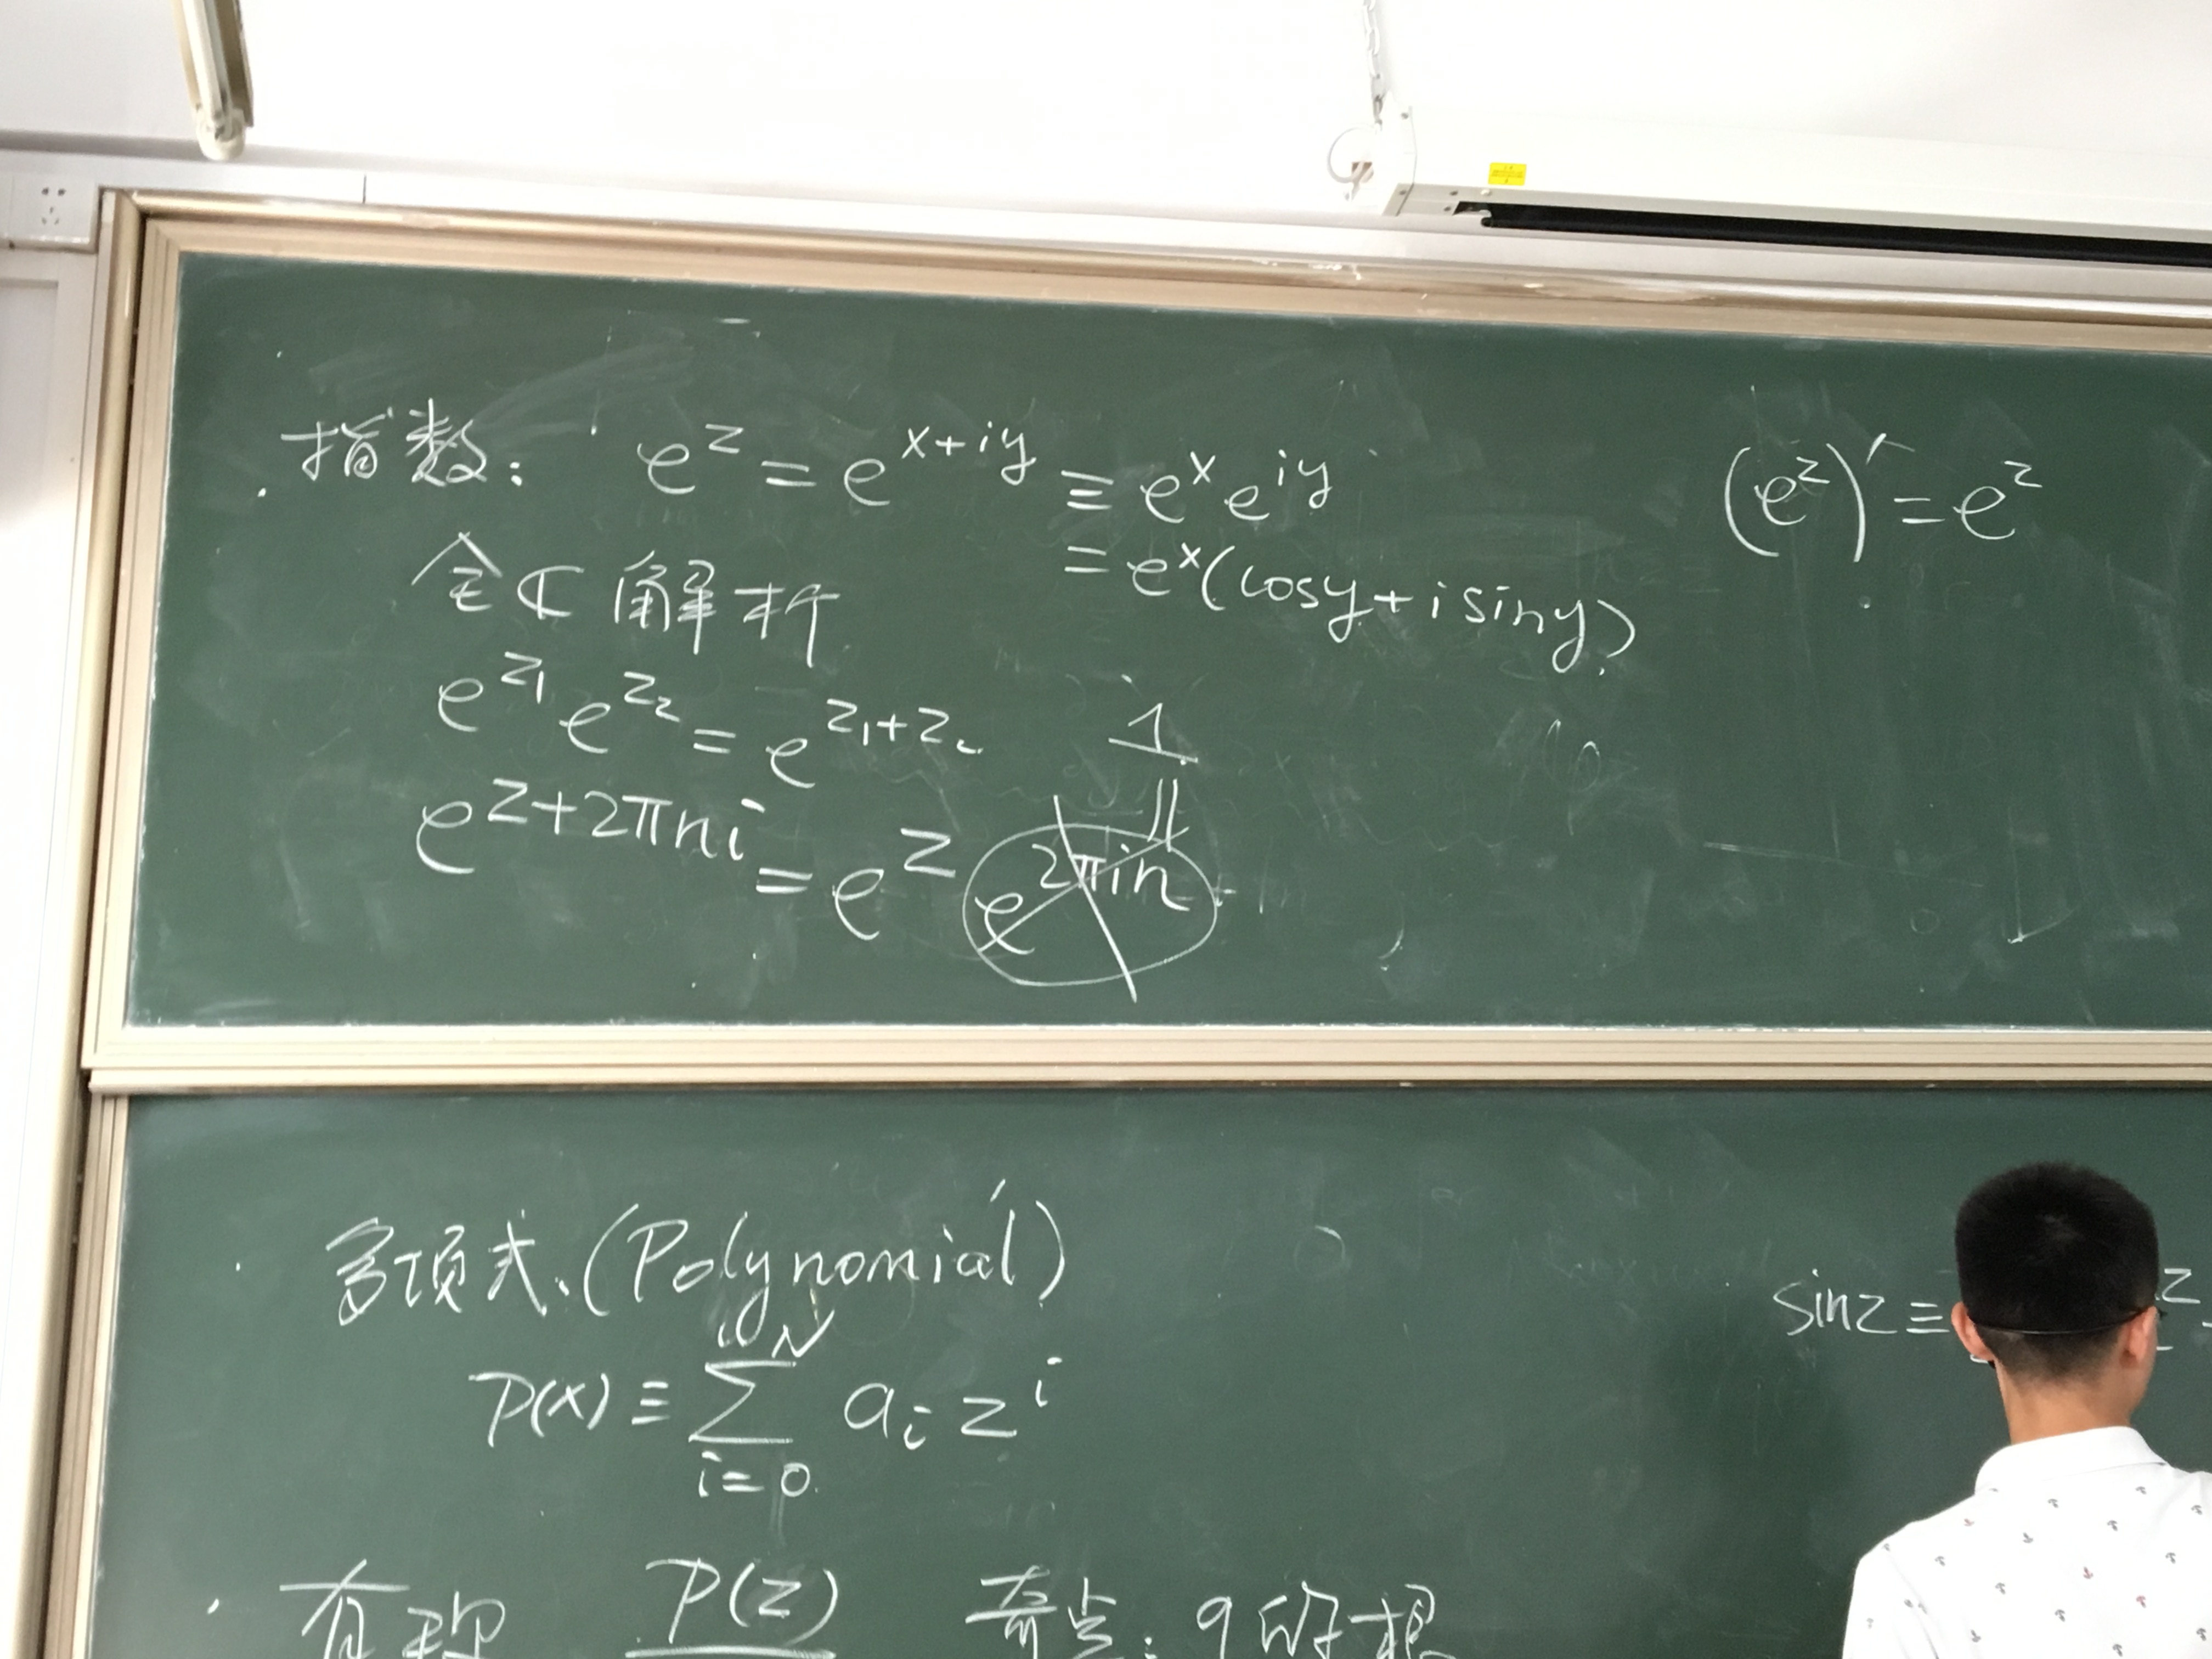 指数: e^z = e^{x+iy} ≡ e^x e^{iy}
= e^x(cosy+isiny)
(e^z)′ = e^z
全ℂ解析
e^{z₁} e^{z₂} = e^{z₁+z₂}
1
||
e^{z+2πni} = e^z e^{2πin}
多项式.(Polynomial)
P(x) ≡ ∑_{i=0}^{N} a_i z^i
sinz ≡
有理 P(z) 奇点: q的根